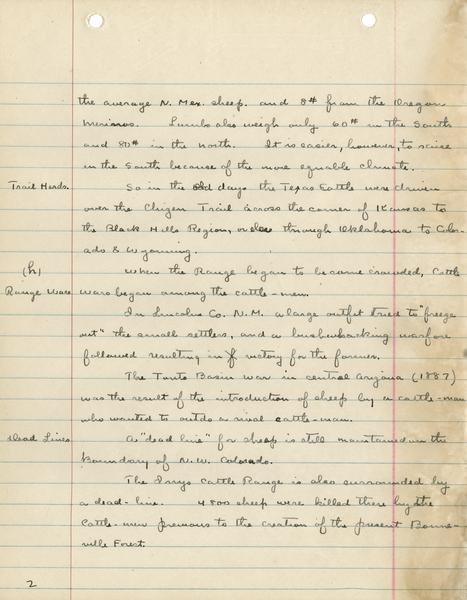 the average N. Mex. sheep. and 8# from the Oregon
Merinos. Lambs also weigh only 60# in the South
and 80# in the north. It is easier, however, to raise
in the South because of the more equable climate.
Trail Herds. So in the old days the Texas Cattle were driven
over the Trail across the corner of Kansas to
the Black Hills Region, or else through Oklahoma to Color-
ado & Wyoming.
(h) When the Range began to become crowded, Cattle
Range Wars wars began among the cattle-men.
In Lincoln Co. N.M. a large outfit tried to "freeze
out" the small settlers, and a bushwhacking warfare
followed resulting in victory for the former.
The Tonto Basin war in central Arizona (1887)
was the result of the introduction of sheep by a cattle-man
who wanted to outdo a rival cattle-man.
Dead Lines A "dead line" for sheep is still maintained on the
Boundary of N.W. Colorado.
The Cattle Range is also surrounded by
a dead-line. 4800 sheep were killed there by the
Cattle-men previous to the creation of the present Bonne-
ville Forest.
2